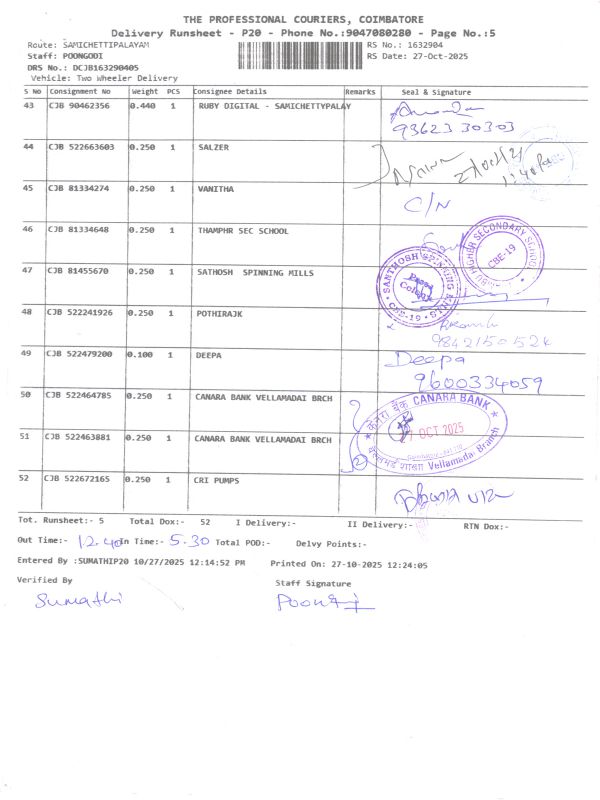 THE PROFESSIONAL COURIERS, COIMBATORE
Delivery Runsheet - P20 - Phone No.:9047080280 - Page No.:5
Route: SAMICHETTIPALAYAM RS No.: 1632904
Staff: POONGODI RS Date: 27-Oct-2025
DRS No.: DCJB163290405
Vehicle: Two Wheeler Delivery
S No Consignment No Weight PCS Consignee Details Remarks Seal & Signature
43 CJB 90462356 0.440 1 RUBY DIGITAL - SAMICHETTYPALAY
93623 30303
44 CJB 522663603 0.250 1 SALZER
45 CJB 81334274 0.250 1 VANITHA C/N
46 CJB 81334648 0.250 1 THAMPHR SEC SCHOOL
HIGHER SECONDARY SCHOOL
CBE-19
47 CJB 81455670 0.250 1 SATHOSH SPINNING MILLS
SANTHOSH SPINNING MILLS
CBE-19
48 CJB 522241926 0.250 1 POTHIRAJK
9842150524
49 CJB 522479200 0.100 1 DEEPA Deepa
9600334059
50 CJB 522464785 0.250 1 CANARA BANK VELLAMADAI BRCH
केनरा बैंक CANARA BANK
OCT 2025
51 CJB 522463881 0.250 1 CANARA BANK VELLAMADAI BRCH
Vellamadai Branch
2
52 CJB 522672165 0.250 1 CRI PUMPS
Tot. Runsheet:- 5 Total Dox:- 52 I Delivery:- II Delivery:- RTN Dox:-
Out Time:- 12.40 In Time:- 5.30 Total POD:- Delvy Points:-
Entered By :SUMATHIP20 10/27/2025 12:14:52 PM Printed On: 27-10-2025 12:24:05
Verified By Staff Signature
Sumathi